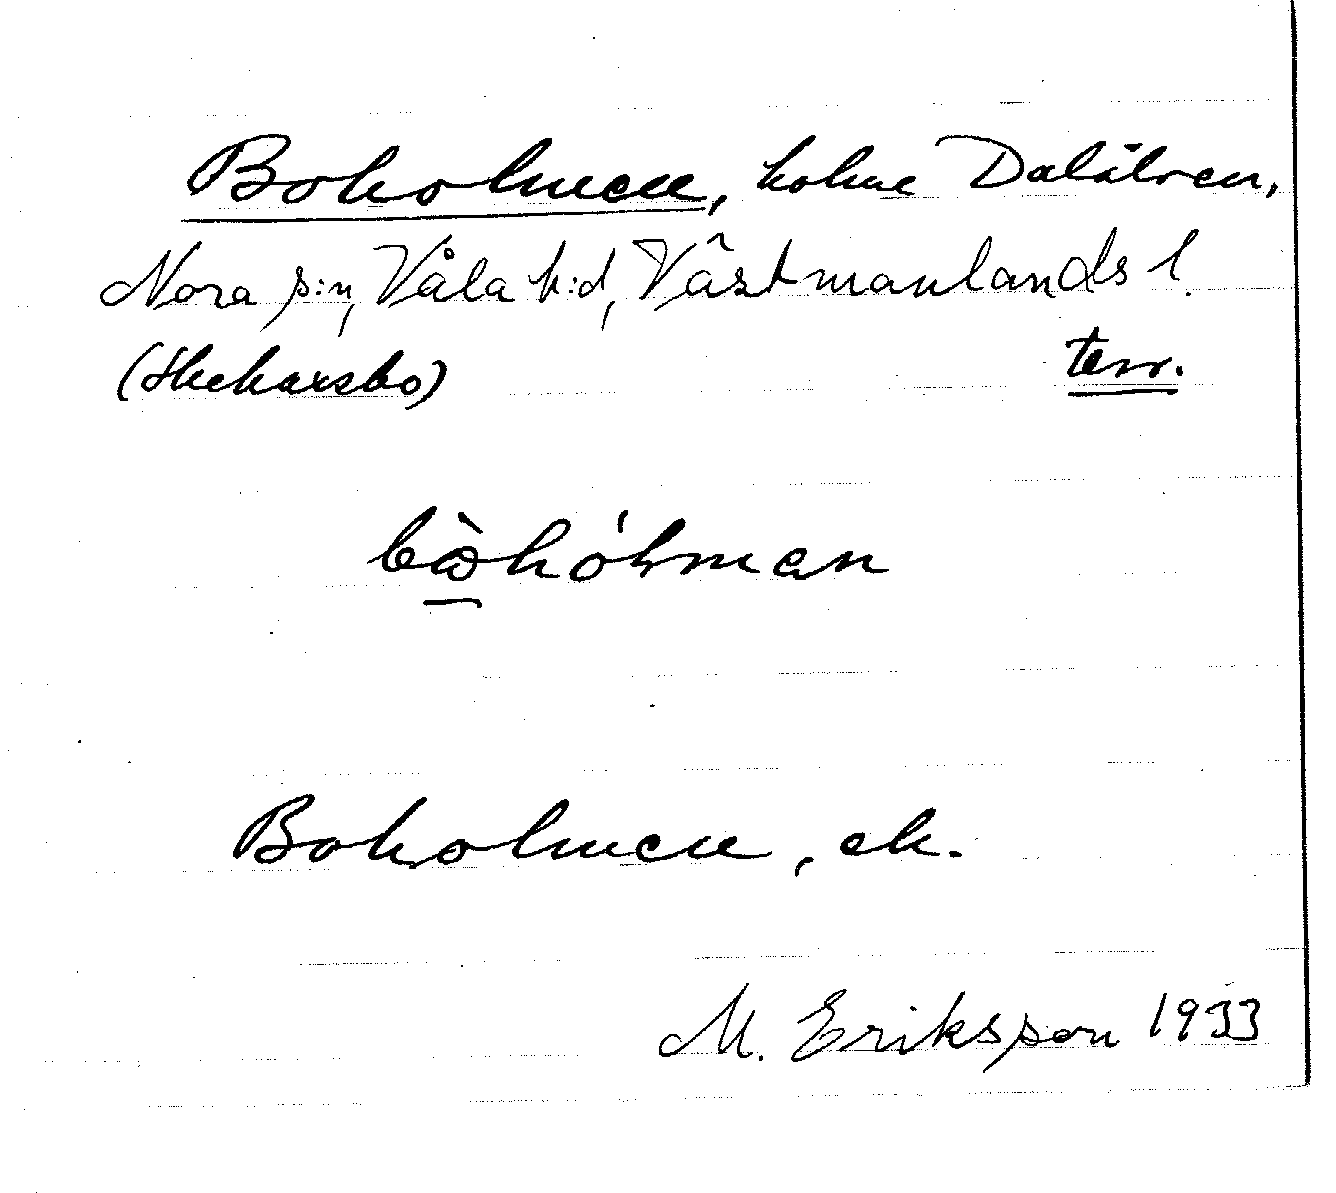 Boholmen, holme Dalälven,
Nora s:n, Våla h:d, Västmanlands l.
(Skekarsbo) terr.
bòhólman
Boholmen, ek.
M. Eriksson 1933